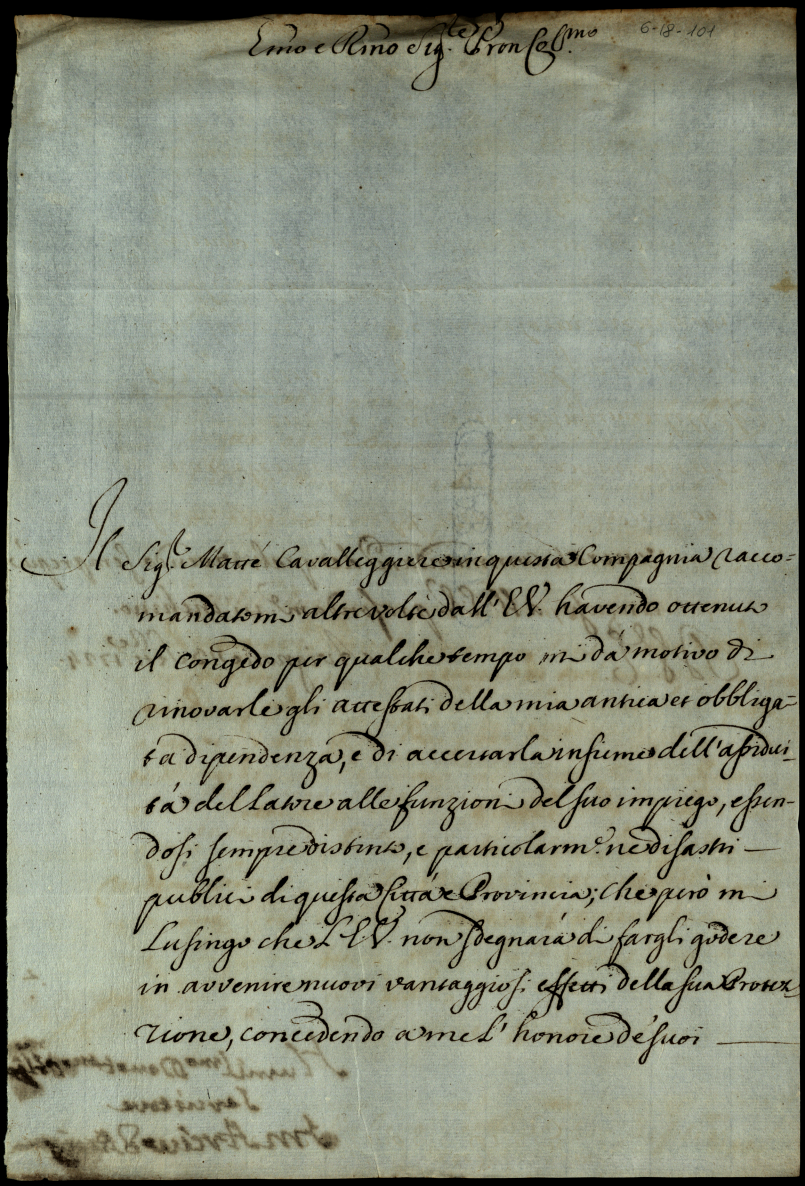 6-18-101
Emo e Rmo Sig.re Pron Col.mo
Il Sig.r Matté Cavalleggiere in questa Compagnia racco=
mandatomi altre volte dall' E.V. havendo ottenuto
il congedo per qualche tempo mi dá motivo di
rinovarle gli attestati della mia antica et obbliga=
ta dipendenza, e di accertarla insieme dell' assidui=
tá del Latore alle funzioni del suo impiego, essen=
dosi sempre distinto, e particolarm.e ne disastri —
publici di questa Cittá e Provincia; che peró mi
Lusingo che L' E.V. non sdegnará di fargli godere
in avvenire nuovi vantaggiosi effetti della sua Protez=
zione, concedendo a me L' honore de' suoi —